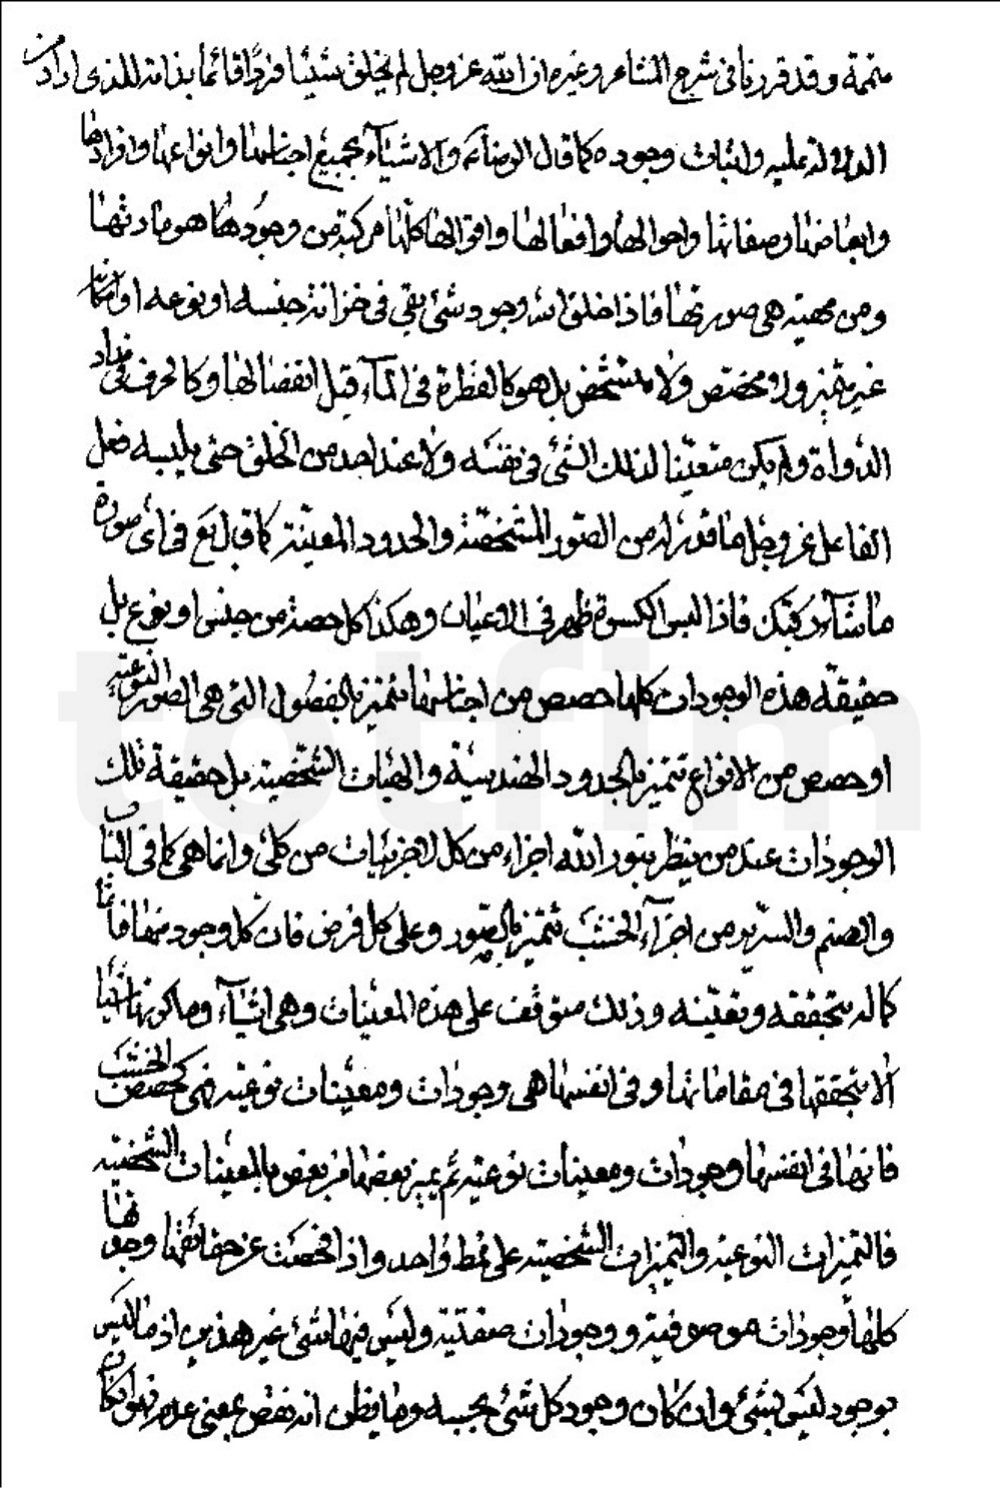 متممة وقد قررنا فى شرح المشاعر وغيره ان الله عز وجل لم يخلق شيئا فردا قائما بذاته للذى اراد من
الدلالة عليه واثبات وجوده كما قال الرضا ع والاشياء بجميع اجناسها وانواعها وافرادها
وابعاضها وصفاتها واحوالها وافعالها واقوالها كلها مركبة من وجودها هو مادتها
ومن مهيته هى صورتها فاذا خلق الله وجود شئ بقى فى خزانة جنسه او نوعه او
غير متميز ولا مختص ولا متشخص بل هو كالقطرة فى الماء قبل انفصالها وكالحرف فى مداد
الدواة ولم يكن متعينا لذلك الشئ فى نفسه ولا عند احد من الخلق حتى يلبسه فعل
الفاعل عز وجل ما قدر له من الصور المشخصة والحدود المعينة كما قال تع فى اى صورة
ما شاء ركبك فاذا لبس الكسوة ظهر فى الاعيان وهكذا كل حصة من جنس او نوع بل
حقيقة هذه الوجودات كلها حصص من اجناسها تتميز بالفصول التى هى الصور النوعية
او حصص من الانواع تتميز بالحدود الهندسية والهيات الشخصية بل حقيقة تلك
الوجودات عند من ينظر بنور الله اجزاء من كل لا جزئيات من كلى وانما هى كما فى الباب
والصنم والسرير من اجزاء الخشب تتميز بالصور وعلى كل فرض فان كل وجود منها فانما
كماله بتحققه وتعينه وذلك متوقف على هذه المعينات وهى اشياء وما كونها اشياء
الا بتحققها فى مقاماتها وفى انفسها هى وجودات ومعينات نوعية فهى كحصص الخشب
فانها فى انفسها وجودات ومعينات نوعية ثم يميز بعضها من بعض بالمعينات الشخصية
فالتميزات النوعية والتميزات الشخصية على نمط واحد واذا فحصت عن حقائقها وجدتها
كلها وجودات موصوفية ووجودات صفتية وليس فيها شئ غير هذين اذ ما ليس
بوجود ليس بشئ وان كان وجود كل شئ بحسبه وما يظن انه نقص بمعنى عدم فهو ان كان